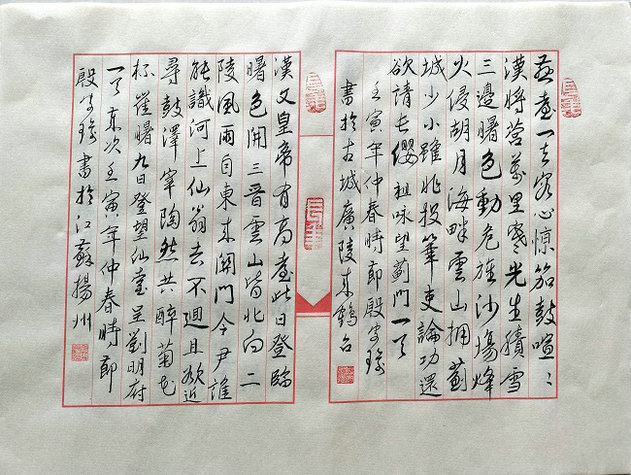 燕臺一去客心驚笳鼓喧〻
漢將營萬里寒光生積雪
三邊曙色動危旌沙場烽
火侵胡月海畔雲山擁薊
城少小雖非投筆吏論功還
欲請長纓祖詠望薊門一首
壬寅年仲春時節殷
書於古城廣陵來鶴台
漢文皇帝有高臺此日登臨
曙色開三晉雲山皆北向二
陵風雨自東來關門令尹誰
能識河上仙翁去不迴且欲近
尋彭澤宰陶然共醉菊花
杯崔曙九日登望仙臺呈劉明府
一首歲次壬寅年仲春時節
殷 書於江蘇揚州